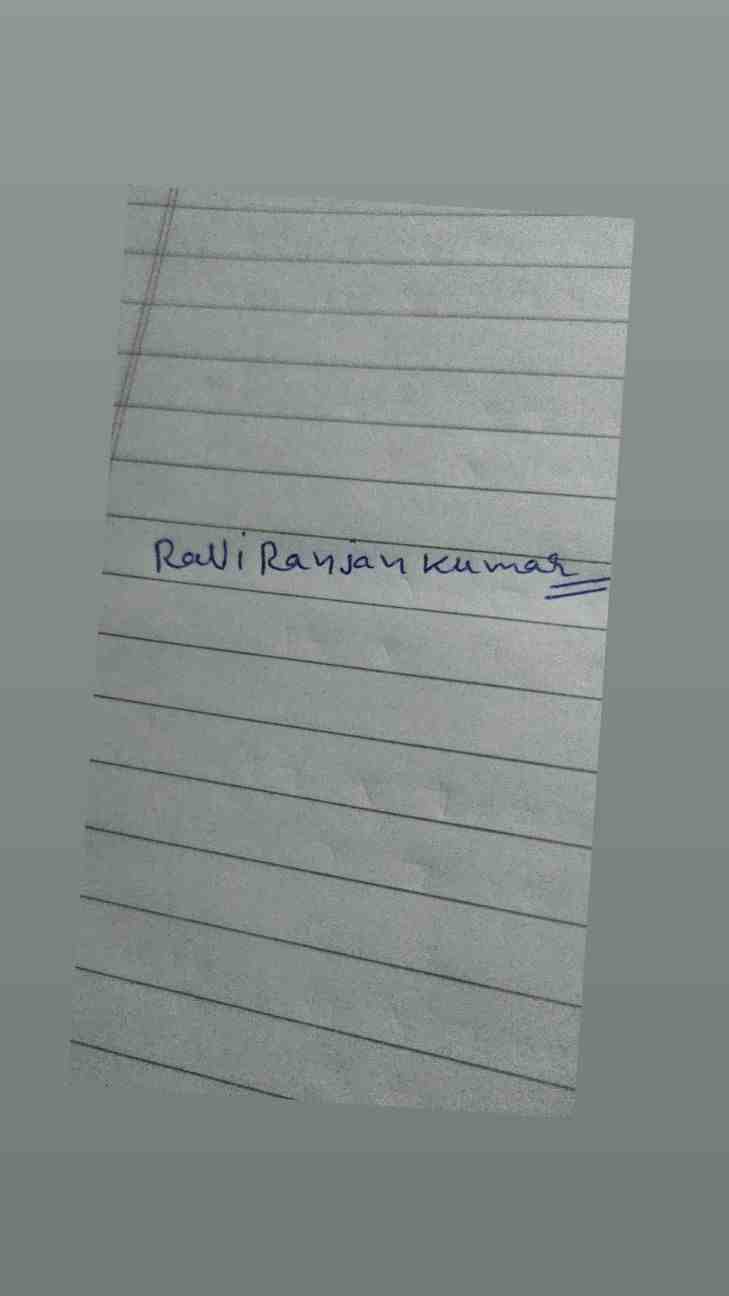 RaVi Ranjan kumar